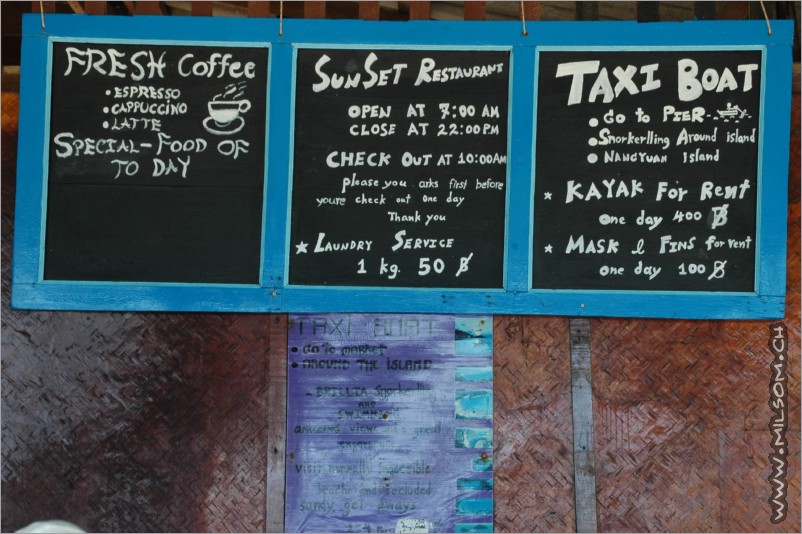 FRESH Coffee
• ESPRESSO
• CAPPUCCINO
• LATTE
SPECIAL-FOOD OF
TO DAY
SUNSET RESTAURANT
OPEN AT 7:00 AM
CLOSE AT 22:00 PM
CHECK OUT AT 10:00AM
please you asks first before
youre check out one day
Thank you
★ LAUNDRY SERVICE
1 kg. 50 ฿
TAXI BOAT
• Go to PIER
• Snorkerlling Around island
• NANGYUAN Island
★ KAYAK For Rent
one day 400 ฿
★ MASK & FINS for rent
one day 100 ฿
TAXI BOAT
• GO TO MARKET
• AROUND THE ISLAND
Snorkerlling
AND
SWIMMING
great
visit normally
beach and secluded
sandy get aways
www.milsom.ch